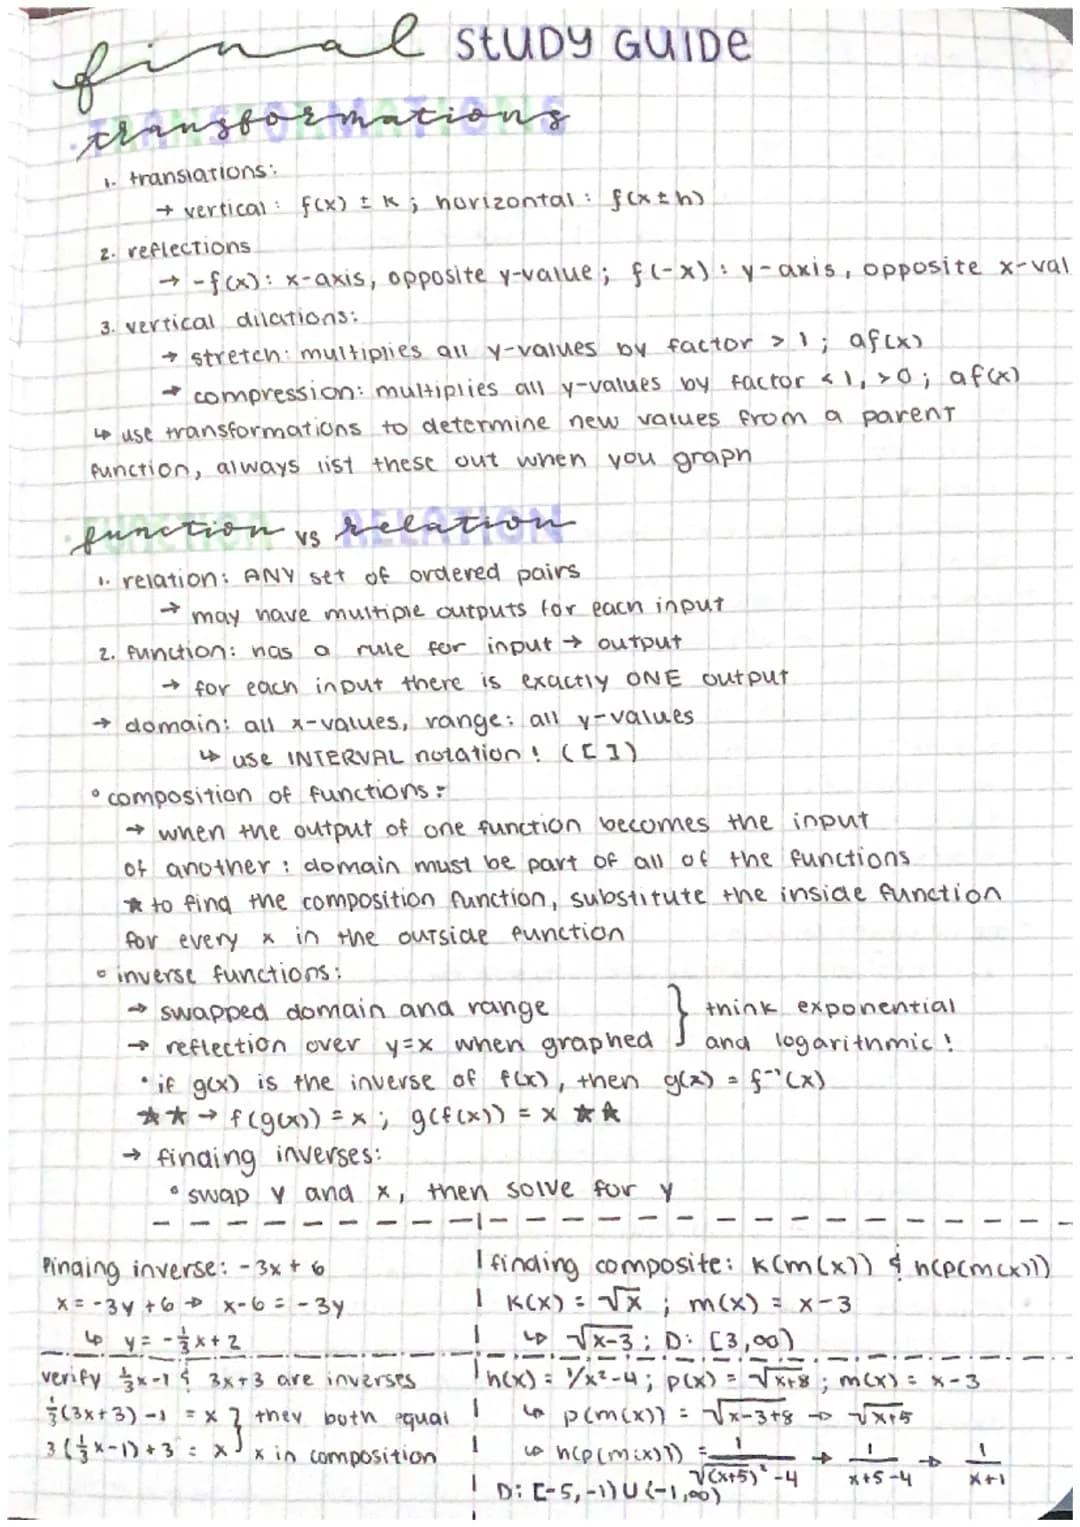 final STUDY GUIDE
• transformations
1. translations:
→ vertical: f(x) ± k; horizontal: f(x ± h)
2. reflections
→ -f(x): x-axis, opposite y-value; f(-x): y-axis, opposite x-val
3. vertical dilations:
→ stretch: multiplies all y-values by factor > 1; af(x)
→ compression: multiplies all y-values by factor < 1, > 0; af(x)
↳ use transformations to determine new values from a parent
function, always list these out when you graph
• function vs relation
1. relation: ANY set of ordered pairs
→ may have multiple outputs for each input
2. function: has a rule for input → output
→ for each input there is exactly ONE output
→ domain: all x-values, range: all y-values
↳ use INTERVAL notation! ([ ])
° composition of functions:
→ when the output of one function becomes the input
of another: domain must be part of all of the functions
★ to find the composition function, substitute the inside function
for every x in the outside function
° inverse functions:
→ swapped domain and range } think exponential
→ reflection over y=x when graphed } and logarithmic!
• if g(x) is the inverse of f(x), then g(x) = f⁻¹(x)
★★ → f(g(x)) = x; g(f(x)) = x ★★
→ finding inverses:
° swap y and x, then solve for y
finding inverse: -3x + 6
x = -3y + 6 → x-6 = -3y
↳ y = -⅓x + 2
verify ⅓x-1 & 3x+3 are inverses
⅓(3x+3)-1 = x } they both equal
3(⅓x-1)+3 = x } x in composition
finding composite: k(m(x)) & h(p(m(x)))
k(x) = √x ; m(x) = x-3
↳ √x-3 ; D: [3,∞)
h(x) = 1/x²-4; p(x) = √x+8 ; m(x) = x-3
↳ p(m(x)) = √x-3+8 → √x+5
↳ h(p(m(x))) = 1/√(x+5)²-4 → 1/x+5-4 → 1/x+1
D: [-5,-1) U (-1,∞)